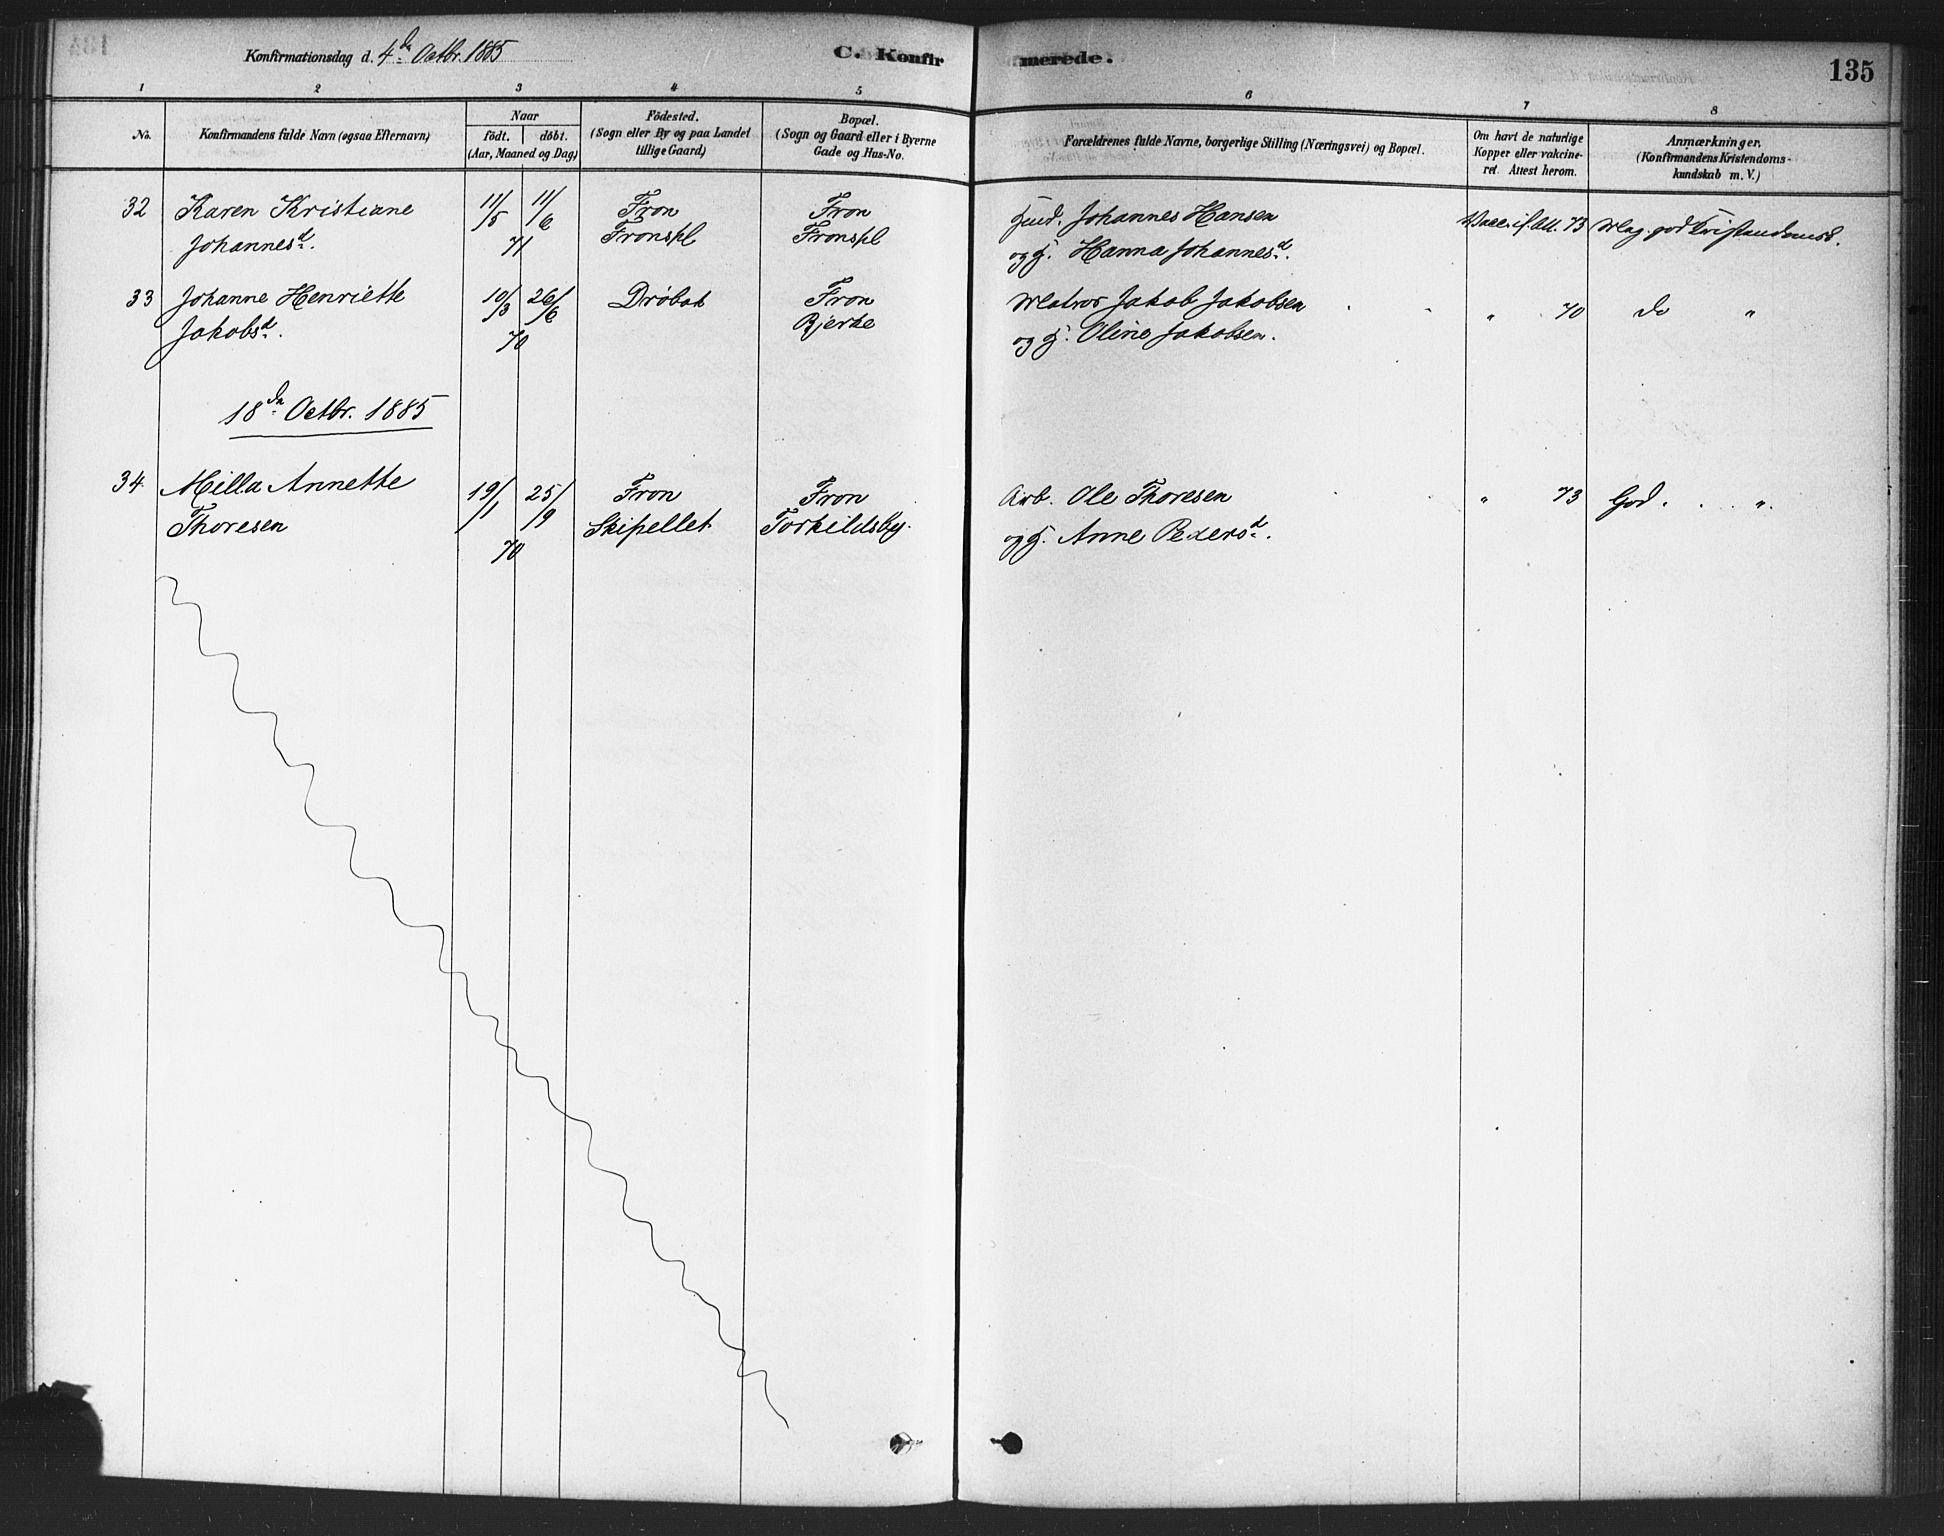 Konfirmationsdag d. 4de Octbr. 1885
C. Konfirmerede.
135
1 2 3 4 5 6 7 8
No.
Konfirmandens fulde Navn (ogsaa Efternavn)
Naar
födt. döbt.
(Aar, Maaned og Dag)
Födested.
(Sogn eller By og paa Landet
tillige Gaard)
Bopæl.
(Sogn og Gaard eller i Byerne
Gade og Hus-No.
Forældrenes fulde Navne, borgerlige Stilling (Næringsvei) og Bopæl.
Om havt de naturlige
Kopper eller vakcine-
ret. Attest herom.
Anmærkninger.
(Konfirmandens Kristendoms-
kundskab m. V.)
32 Karen Kristiane 11/5 11/6 Fron Fron Johannes Hansen Vacc. if. att. 73 Mg. god Kristendomsk.
Johannesd. 71 Fronspl Fronspl og H. Hanna Johannesd.
33 Johanne Henriette 10/3 26/6 Dröbak Fron Matros Jakob Jakobsen " 70 do "
Jakobsd. 70 Bjerke og H. Oline Jakobsen.
18de Octbr. 1885
34 Milla Annette 19/1 25/9 Fron Fron Arb. Ole Thoresen " 73 God . . ".
Thoresen 70 Skipellet Torkildsby. og H. Anne Pedersd.